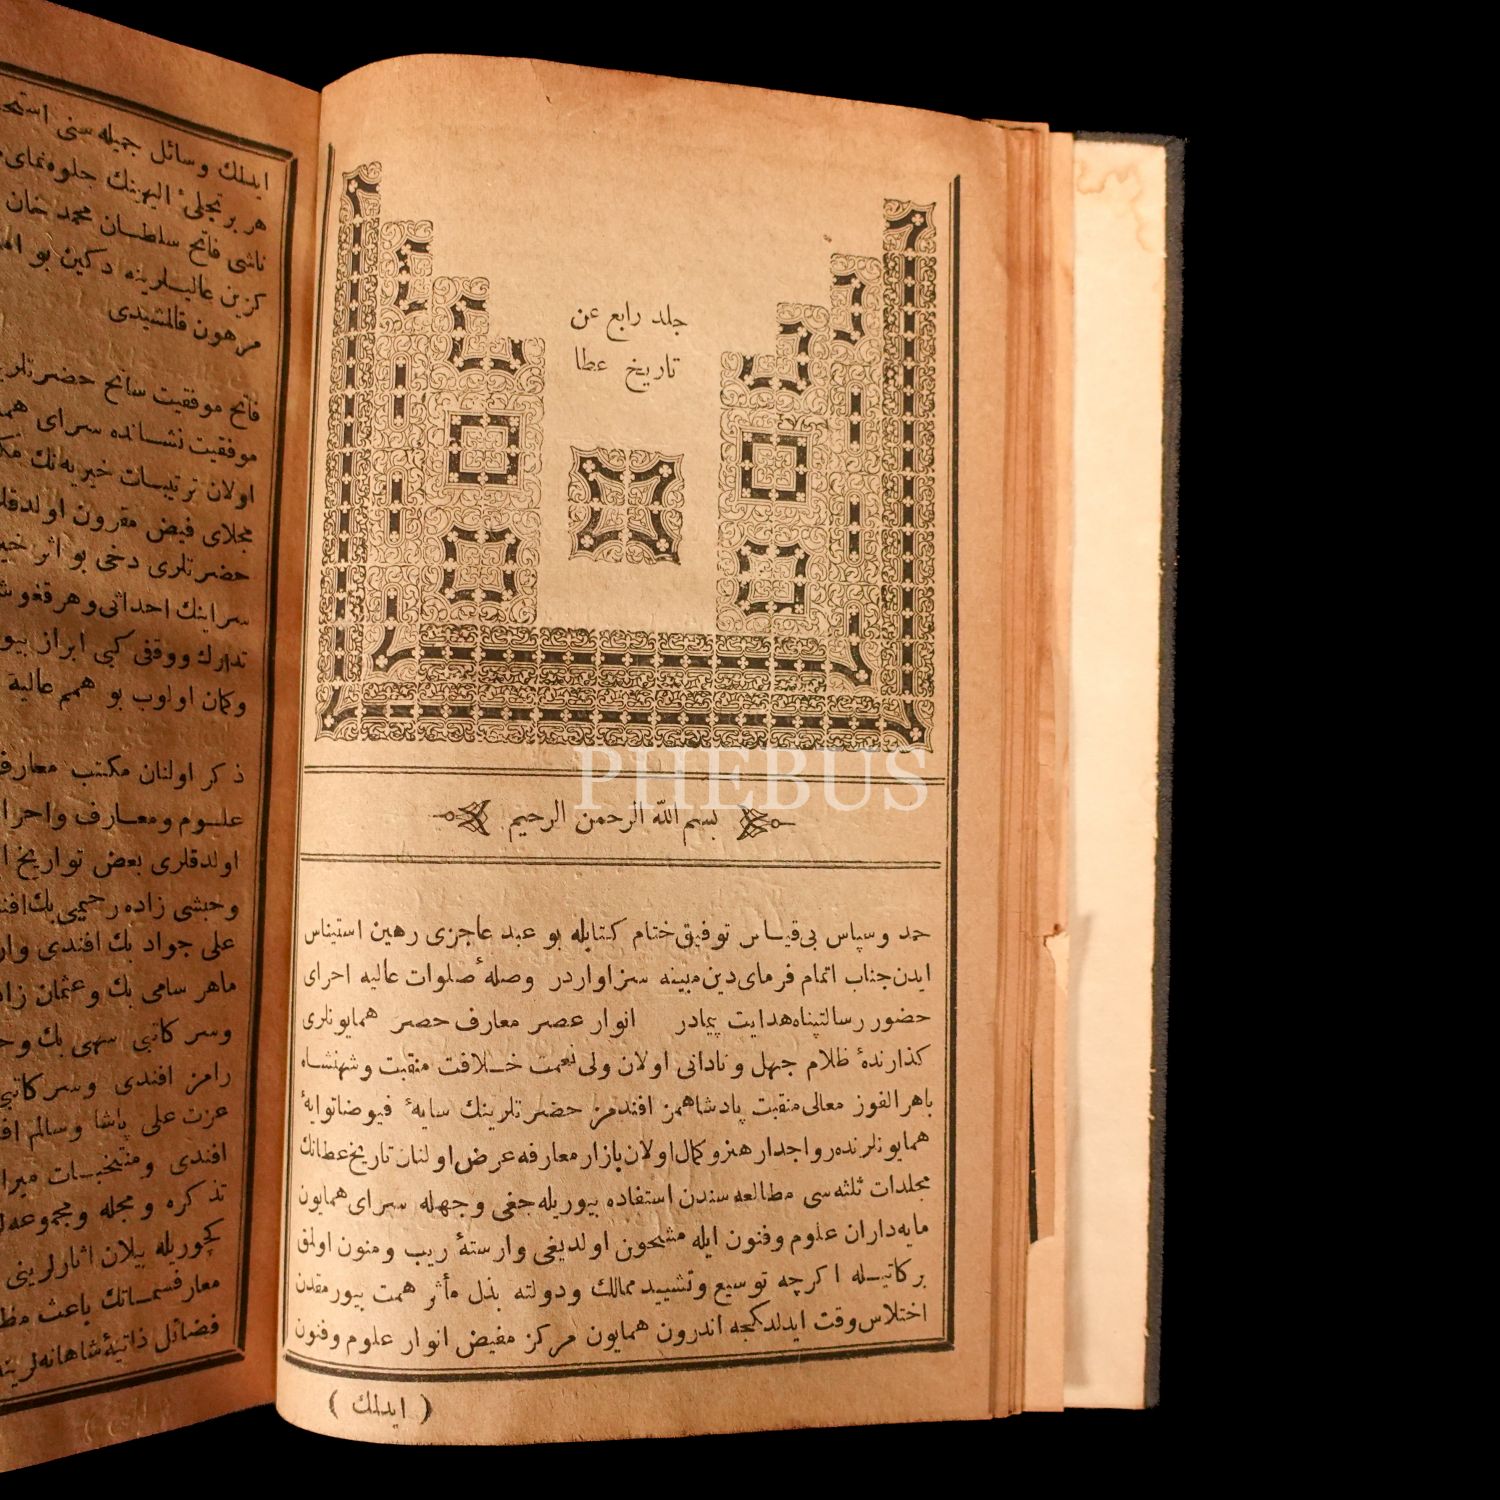 جلد رابع عن
تاريخ عطا
بسم الله الرحمن الرحيم
حمد وسپاس بی‌قياس توفيق ختام كتابله بو عبد عاجزی رهين استيناس
ايدن جناب اتمام فرمای دين مبينه سزاواردر وصلهٔ صلوات عاليه احرای
حضور رسالتپناه هدايت پيمادر انوار عصر معارف حصر همايونلری
كذارندهٔ ظلام جهل و نادانی اولان ولی نعمت خلافت منقبت و شهنشاه
باهر الفوز معالی منقبت پادشاهمز افندمز حضرتلرينك سايهٔ فيوضاتوايهٔ
همايونلرنده رواجدار هنر و كمال اولان بازار معارفه عرض اولنان تاريخ عطانك
مجلدات ثلثه‌سی مطالعه سندن استفاده بيوريله‌جغی وجهله سرای همايون
مايه‌داران علوم وفنون ايله مشحون اولديغی وارستهٔ ريب ومنون اولمق
بركاتيله اكرچه توسيع وتشييد ممالك ودولته بذل مآثر همت بيورمقدن
اختلاس وقت ايدلدكجه اندرون همايون مركز مفيض انوار علوم وفنون
( ايدلمك )
ايدلمك وسائل جميله سنی
هر بر تجلیٔ الهينك جلوه‌نمای
ناشی فاتح سلطان محمد خان
كزين عاليلرينه دكين بو
مرهون قالمشيدی
فاتح موفقيت سانح
موفقيت نشانده سرای
اولان ترتيبات خيريه‌نك
مجلای فيض مقرون
حضرتلری دخی بو اثر
سراينك احداثی وهر
تدارك ووقفی كبی ابراز
وكمان اولوب بو همم عاليهٔ
ذكر اولنان مكتب
علوم ومعارف
اولدقلری بعض تواريخ
وحبشی زاده رحيمی بك
علی جواد بك افندی
ماهر سامی بك وعثمان
وسر كاتبی سهی بك
رامز افندی وسركاتبی
عزت علی پاشا وسالم
افندی ومنتخبات
تذكره ومجله ومجموعه
كچوريله بيلان اثارلرينی
معارفسماتك باعث
فضائل ذاتيهٔ شاهانه‌لرينه
PHEBUS